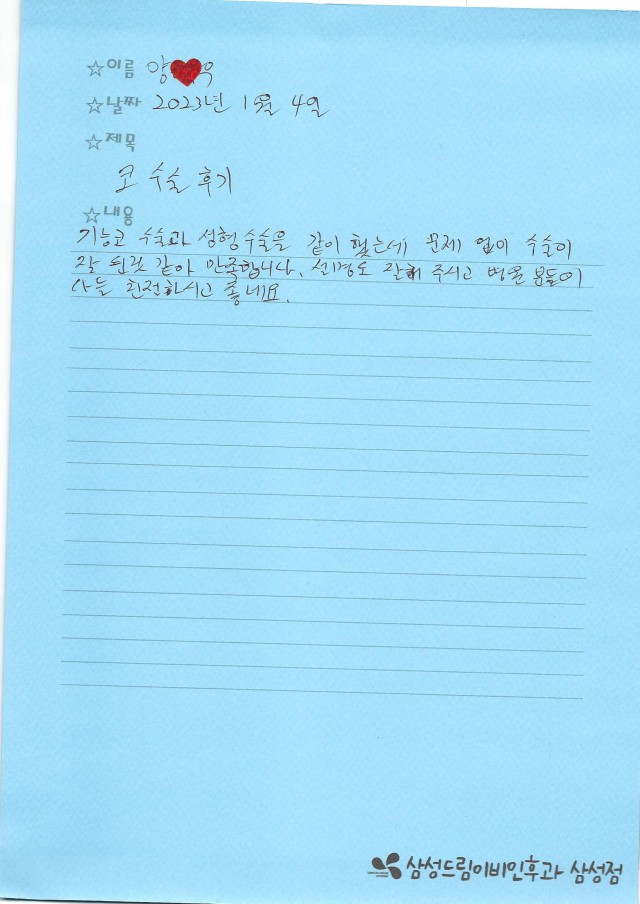 ☆이름 양❤욱
☆날짜 2023년 1월 4일
☆제목
코 수술 후기
☆내용
기능코 수술과 성형수술을 같이 했는데 문제 없이 수술이
잘 된것 같아 만족합니다. 신경도 잘해 주시고 병원 분들이
다들 친절하시고 좋네요.
삼성드림이비인후과 삼성점